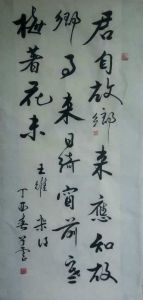 君自故鄉來應知故
鄉事来日綺窗前寒
梅著花未
王維 杂诗
丁酉春